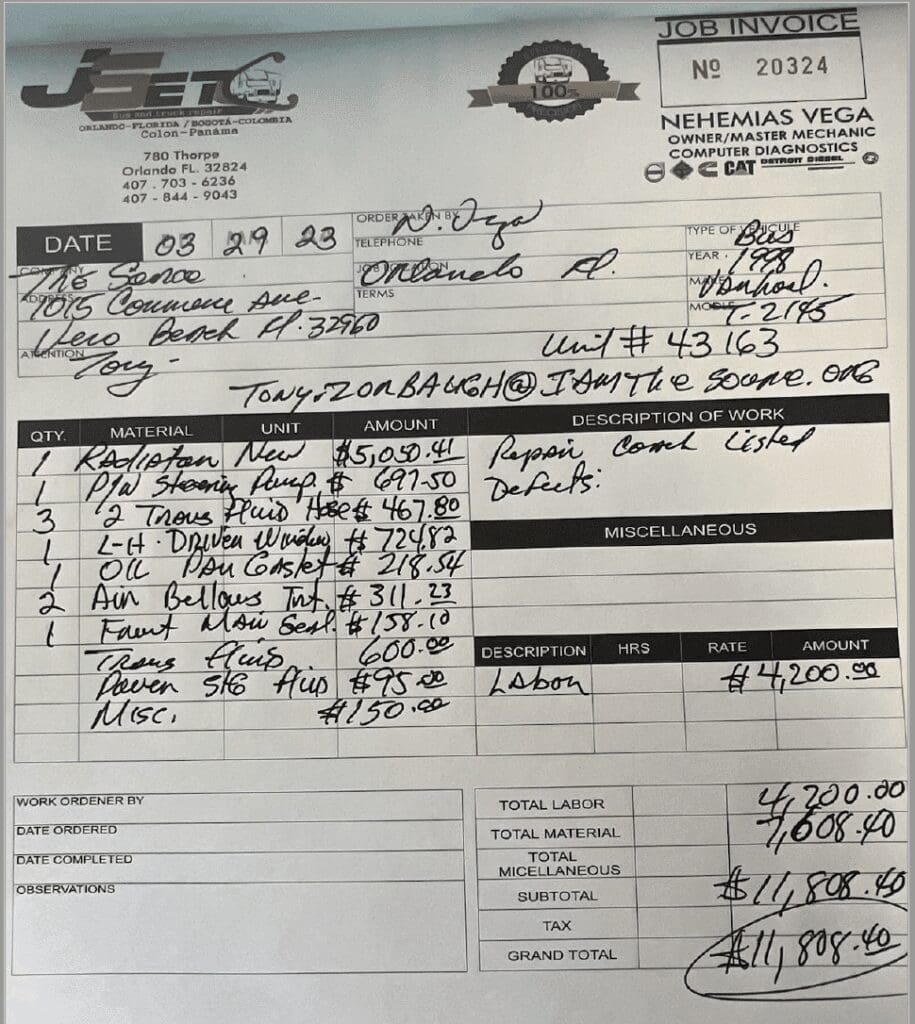 JOB INVOICE
Nº 20324
JSET
Bus and truck repair
ORLANDO-FLORIDA / BOGOTÁ-COLOMBIA
Colon-Panáma
100%
NEHEMIAS VEGA
OWNER/MASTER MECHANIC
COMPUTER DIAGNOSTICS
CAT DETROIT DIESEL
780 Thorpe
Orlando FL. 32824
407 . 703 - 6236
407 - 844 - 9043
DATE 03 29 23
ORDER TAKEN BY N. Vega
TELEPHONE
JOB LOCATION Orlando Fl.
TERMS
TYPE OF VEHICULE Bus
YEAR 1998
MAKE Vanhool.
MODEL T-2145
COMPANY The Sorce
ADDRESS 1015 Commerce Ave-
Vero Beach Fl. 32960
ATTENTION Tony-
Unit # 43163
TONY.ZORBAUGH@IAMThe Source.ORG
QTY. MATERIAL UNIT AMOUNT
1 Radiator New $5,050.41
1 P/W Steering Pump. $ 697.50
3 2 Trans Fluid Hose $ 467.80
1 L-H. Driver Window $ 724.82
1 Oil Pan Gasket $ 218.54
2 Air Bellows Int. $ 311.23
1 Front Main Seal. $158.10
Trans fluid 600.00
Power STG fluid $95.00
Misc. $150.00
DESCRIPTION OF WORK
Repair Coach Listed
Defects:
MISCELLANEOUS
DESCRIPTION HRS RATE AMOUNT
Labor $4,200.00
WORK ORDENER BY
DATE ORDERED
DATE COMPLETED
OBSERVATIONS
TOTAL LABOR 4,200.00
TOTAL MATERIAL 7,608.40
TOTAL MICELLANEOUS
SUBTOTAL $11,808.40
TAX
GRAND TOTAL $11,808.40